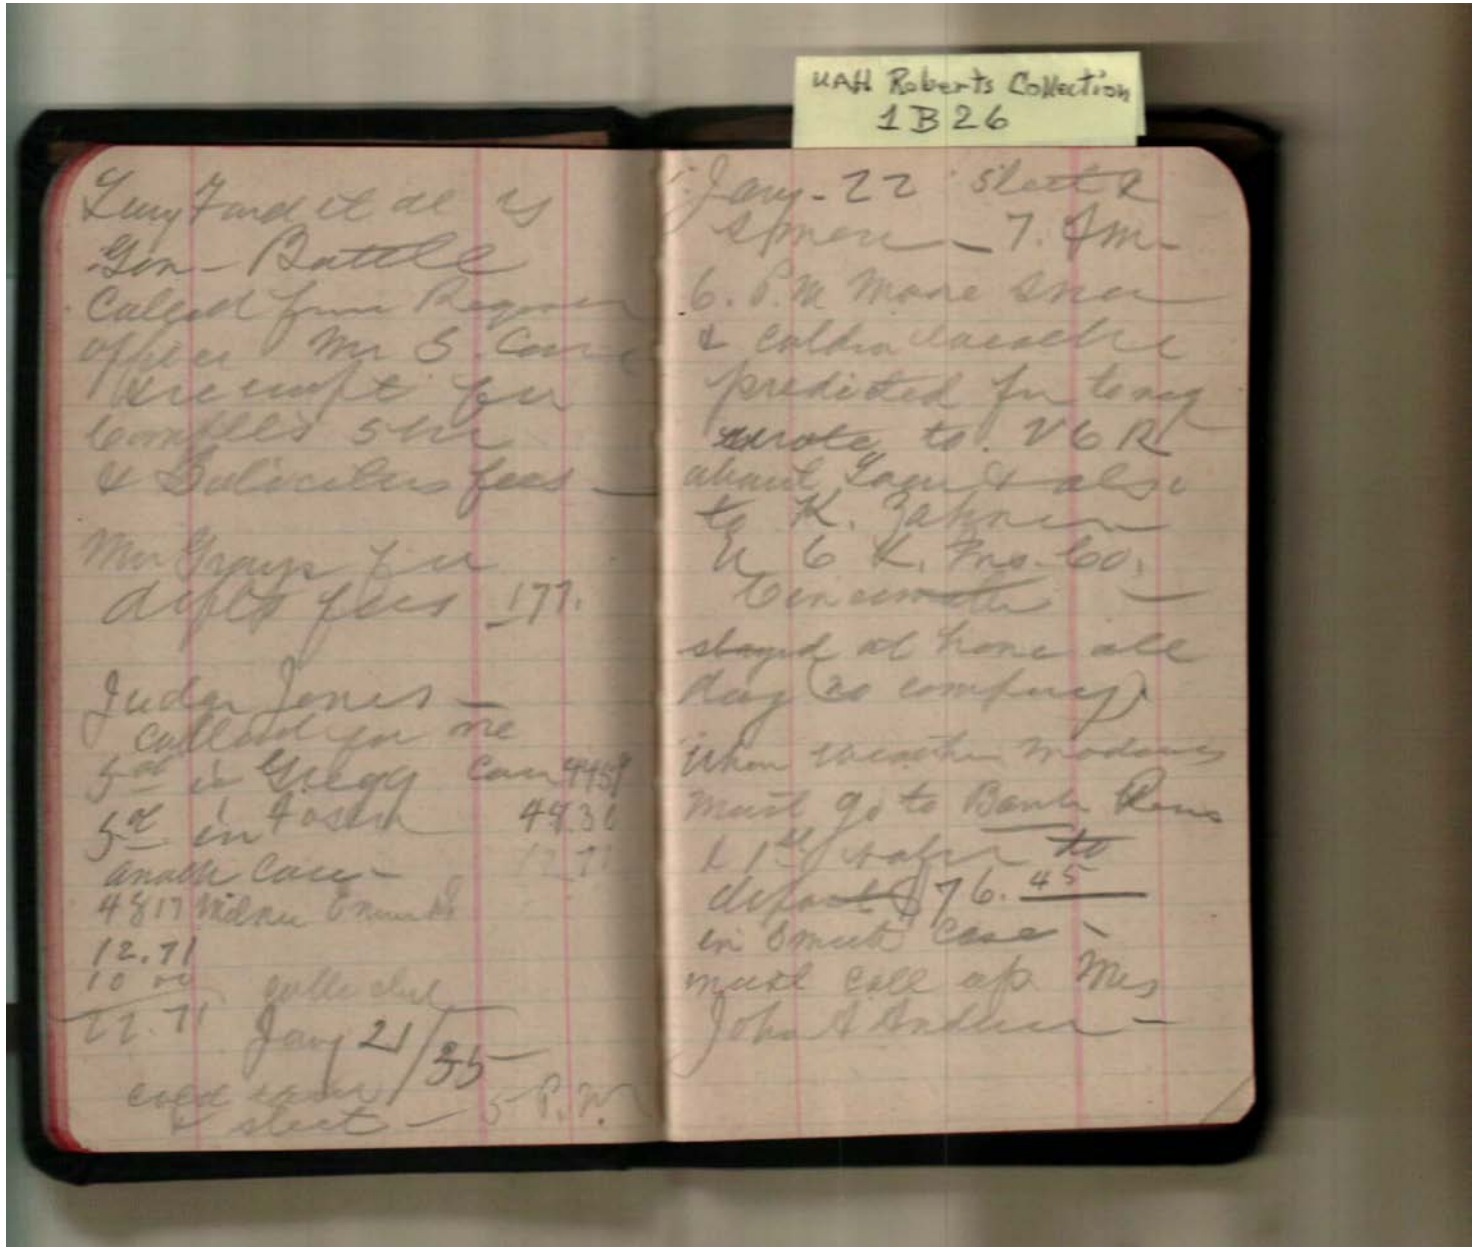 UAH Roberts Collection
1 B 26
Lucy Ford et al vs
Gen - Battle
Called from
office Mr S.
receipt for
Compl's
& Solicitors fees —
Mr Grays for
depts fees 177.
Judge Jones —
called for me
5 in Gregg Case 4459
5 in 48.31
another Case - 12.71
4817
12.71
10 00
22.71 collected
Jany 21/35
cold rain
& sleet - 5 P.M.
Jany - 22 Sleet &
snow — 7. Am -
6. P.M More Snow
& colder weather
predicted for
wrote to. V C R
about Loan & also
to K.
U C L. Ins. Co.
Cincinnati —
stayed at home all
day (co company)
When weather moderates
must go to Bank
& 1st to
deposit $76.45
in Smith Case -
must call up Mrs
John A —